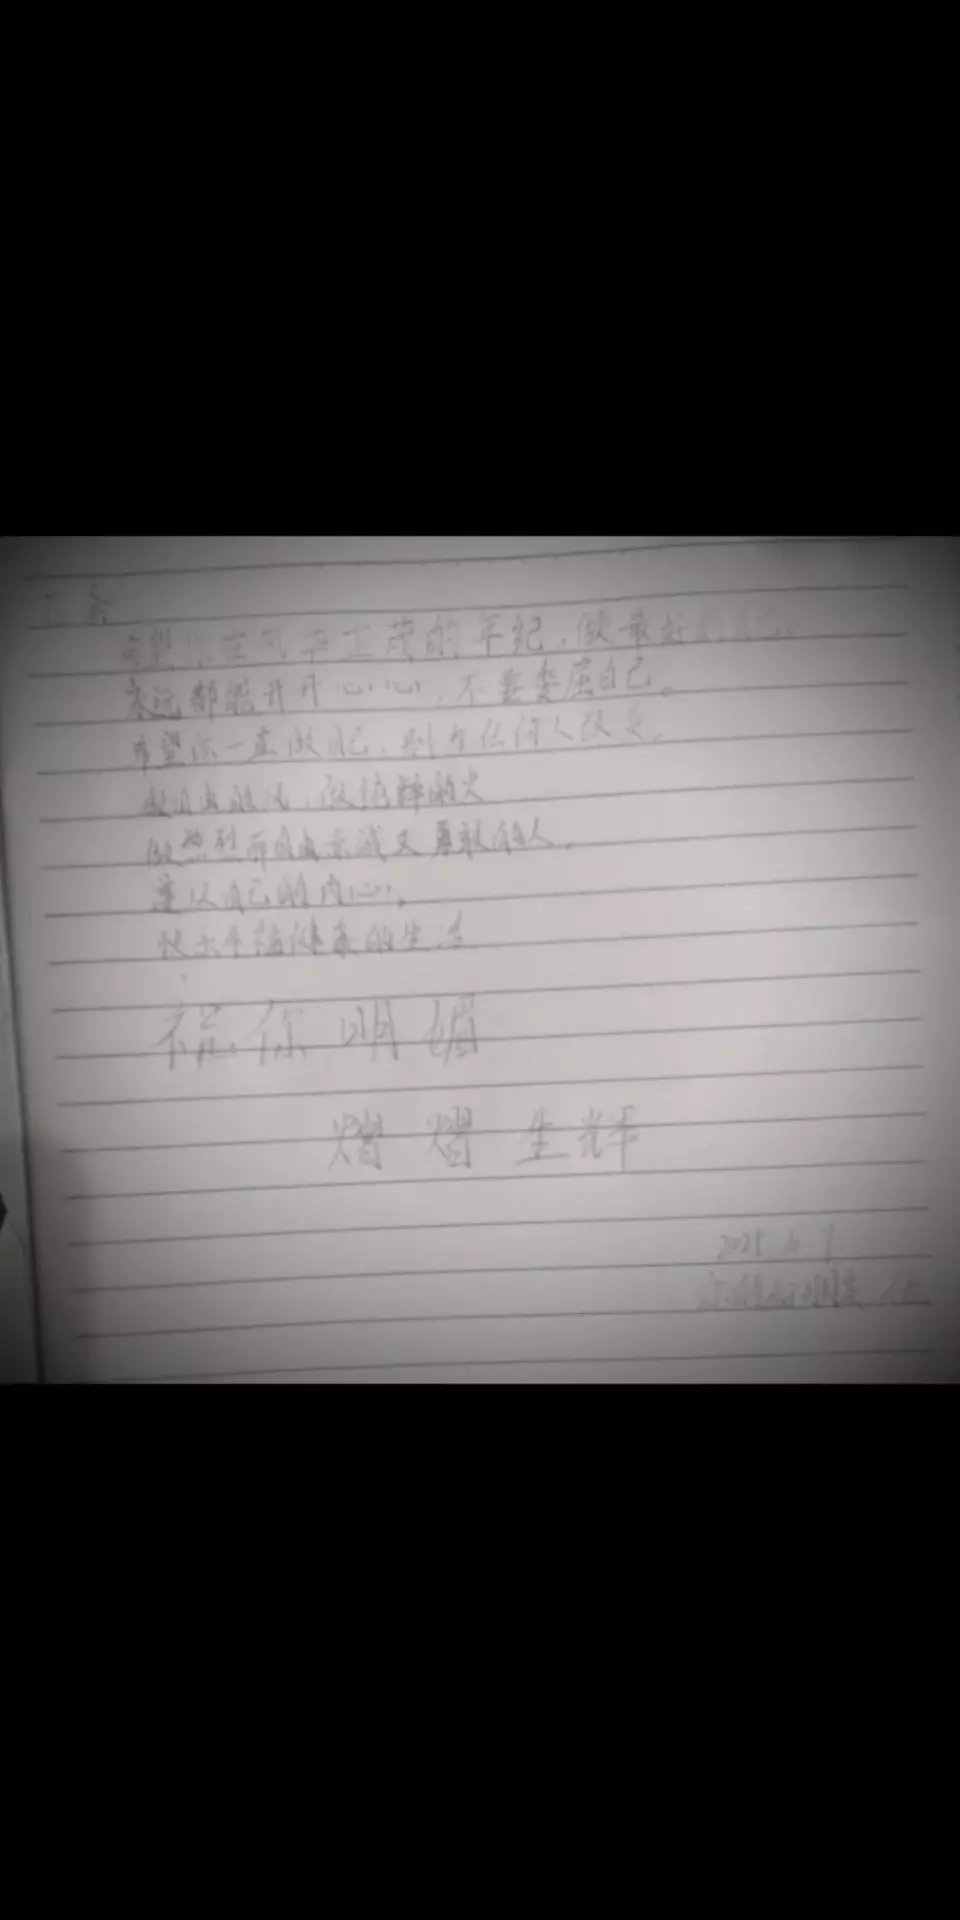 希望你在风华正茂的年纪，做最好的自己。
永远都能开开心心，不要委屈自己。
希望你一直做自己，别为任何人改变。
做自由的风，做纯粹的火
做热烈而自由赤诚又勇敢的人。
遵从自己的内心。
快乐平结健康的生活
祝你明媚
熠熠生辉
2025.6.7